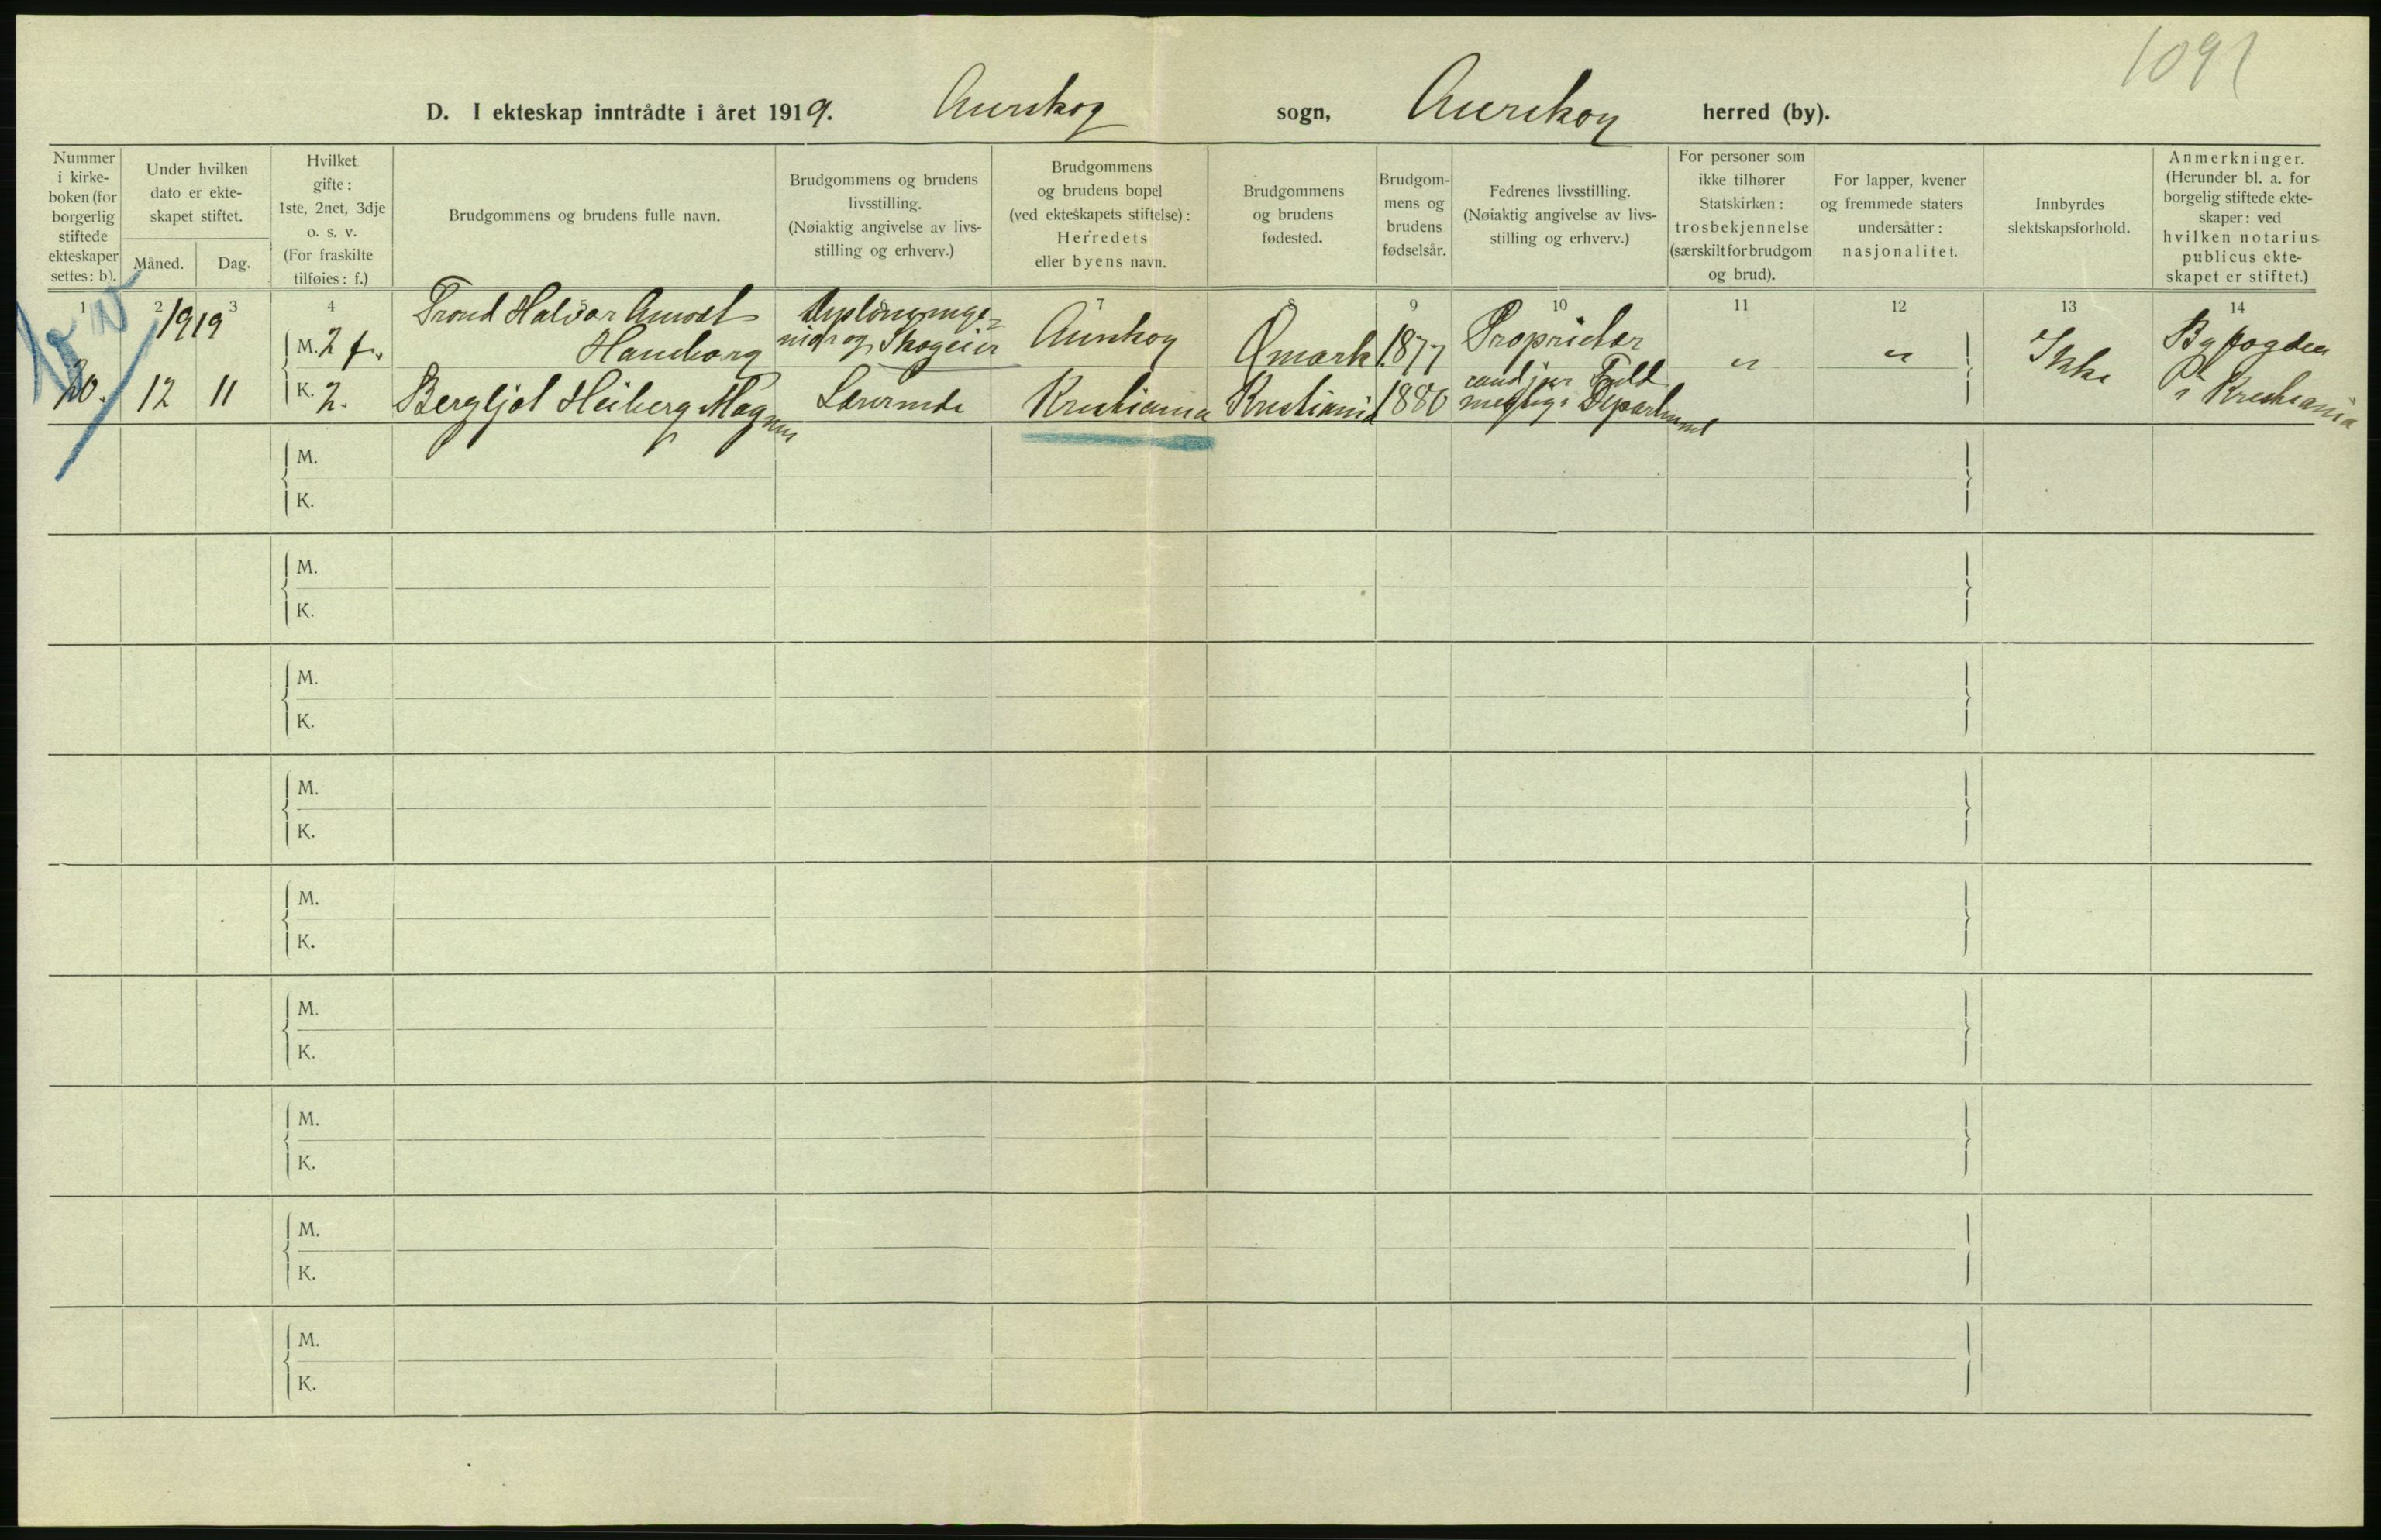 1091
D. I ekteskap inntrådte i året 1919. Aurskog sogn, Aurskog herred (by).
Nummer i kirke-boken (for borgerlig stiftede ekteskaper settes: b).
Under hvilken dato er ekte-skapet stiftet.
Måned. Dag.
Hvilket gifte: 1ste, 2net, 3dje o. s. v. (For fraskilte tilføies: f.)
Brudgommens og brudens fulle navn.
Brudgommens og brudens livsstilling. (Nøiaktig angivelse av livs-stilling og erhverv.)
Brudgommens og brudens bopel (ved ekteskapets stiftelse): Herredets eller byens navn.
Brudgommens og brudens fødested.
Brudgom-mens og brudens fødselsår.
Fedrenes livsstilling. (Nøiaktig angivelse av livs-stilling og erhverv.)
For personer som ikke tilhører Statskirken: trosbekjennelse (særskilt for brudgom og brud).
For lapper, kvener og fremmede staters undersåtter: nasjonalitet.
Innbyrdes slektskapsforhold.
Anmerkninger. (Herunder bl. a. for borgelig stiftede ekte-skaper: ved hvilken notarius publicus ekte-skapet er stiftet.)
1 2 3 4 7 8 9 10 11 12 13 14
1919
M. 2 f. Trond Halvor Haneborg niør og Skogeier Aurskog Ømark 1877 Proprietær " " Ikke Byfogden
20. 12 11 K. 2. Bergljot Heiberg Magnus Lærerinde Kristiania Kristiania 1880 cand jur Fuld
mægtig i Departement i Kristiania
M.
K.
M.
K.
M.
K.
M.
K.
M.
K.
M.
K.
M.
K.
M.
K.
M.
K.